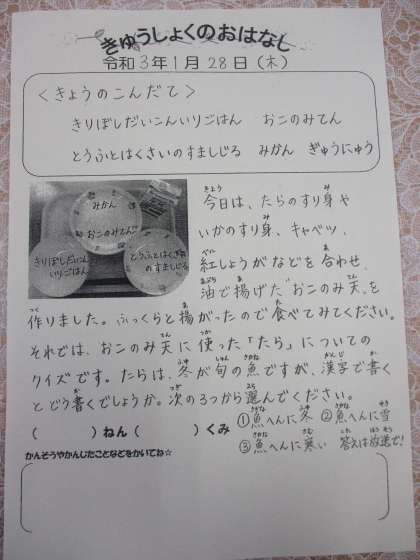 きゅうしょくのおはなし
令和3年1月28日(木)
<きょうのこんだて>
きりぼしだいこんいりごはん おこのみてん
とうふとはくさいのすましじる みかん ぎゅうにゅう
みかん
おこのみてん
きりぼしだいこん
いりごはん
とうふとはくさい
のすましじる
今日は、たらのすり身や
いかのすり身、キャベツ、
紅しょうがなどを合わせ、
油で揚げた"おこのみ天"を
作りました。ふっくらと揚がったので食べてみてください。
それでは、おこのみ天に使った「たら」についての
クイズです。たらは、冬が旬の魚ですが、漢字で書く
とどう書くでしょうか。次の3つから選んでください。
①魚へんに冬 ②魚へんに雪
③魚へんに寒い 答えは放送で!
( )ねん( )くみ
かんそうやかんじたことなどをかいてね☆